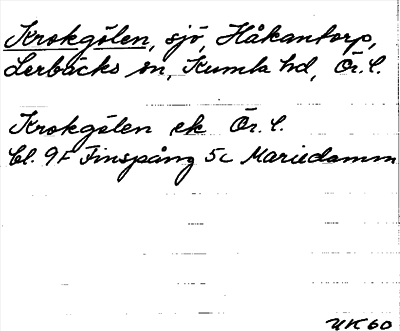 Krokgölen, sjö, Håkantorp,
Lerbäcks sn, Kumla hd, Ör. l.
Krokgölen ek Ör. l.
bl. 9F Finspång 5c Mariedamm
UK60